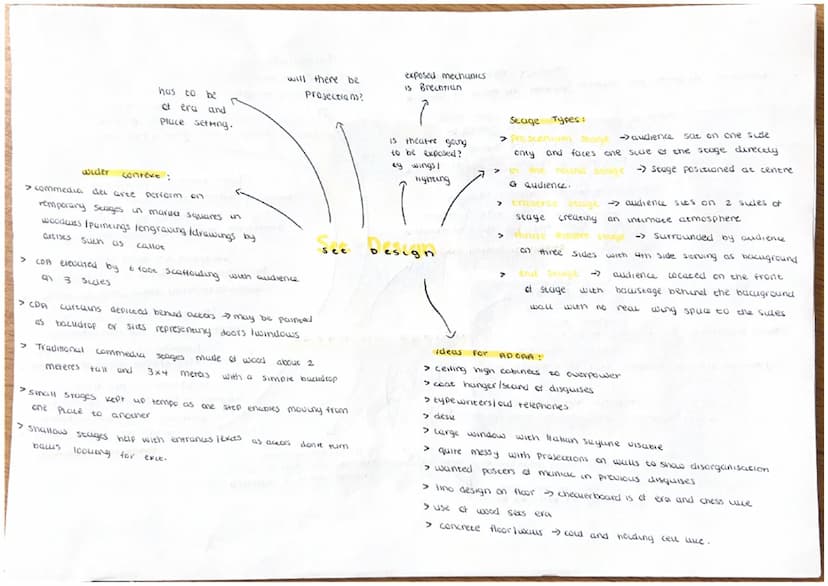 has to be
of era and
place setting.
will there be
projections?
exposed mechanics
is Brechtian
is theatre going
to be exposed?
eg wings/
lighting
Set Design
Stage Types:
> proscenium stage → audience sat on one side
only and faces one side of the stage directly
> in the round stage → stage positioned at centre
of audience.
> traverse stage → audience sits on 2 sides of
stage creating an intimate atmosphere
> thrust stage → surrounded by audience
on three sides with 4th side serving as background
> End stage → audience located on the front
of stage with backstage behind the background
wall with no real wing space to the sides
wider context:
> commedia del arte perform on
temporary stages in market squares in
woodcuts/paintings/engraving/drawings by
artists such as callot
> CDA elevated by 6 foot scaffolding with audience
on 3 sides
> CDA curtains depicted behind actors → may be painted
as backdrop or slits representing doors/windows
> Traditional commedia stages made of wood about 2
meteres tall and 3x4 metres with a simple backdrop
> small stages kept up tempo as one step enables moving from
one place to another
> shallow stages help with entrances/exits as actors don't turn
backs looking for exit.
ideas for ADOAA:
> ceiling high cabinets to overpower
> coat hanger/stand of disguises
> typewriters/old telephones
> desk
> large window with Italian skyline visable
> quite messy with projections on walls to show disorganisation
> wanted posters of maniac in previous disguises
> lino design on floor → checkerboard is of era and chess like
> use of wood sets era
> concrete floor/walls → cold and holding cell like.